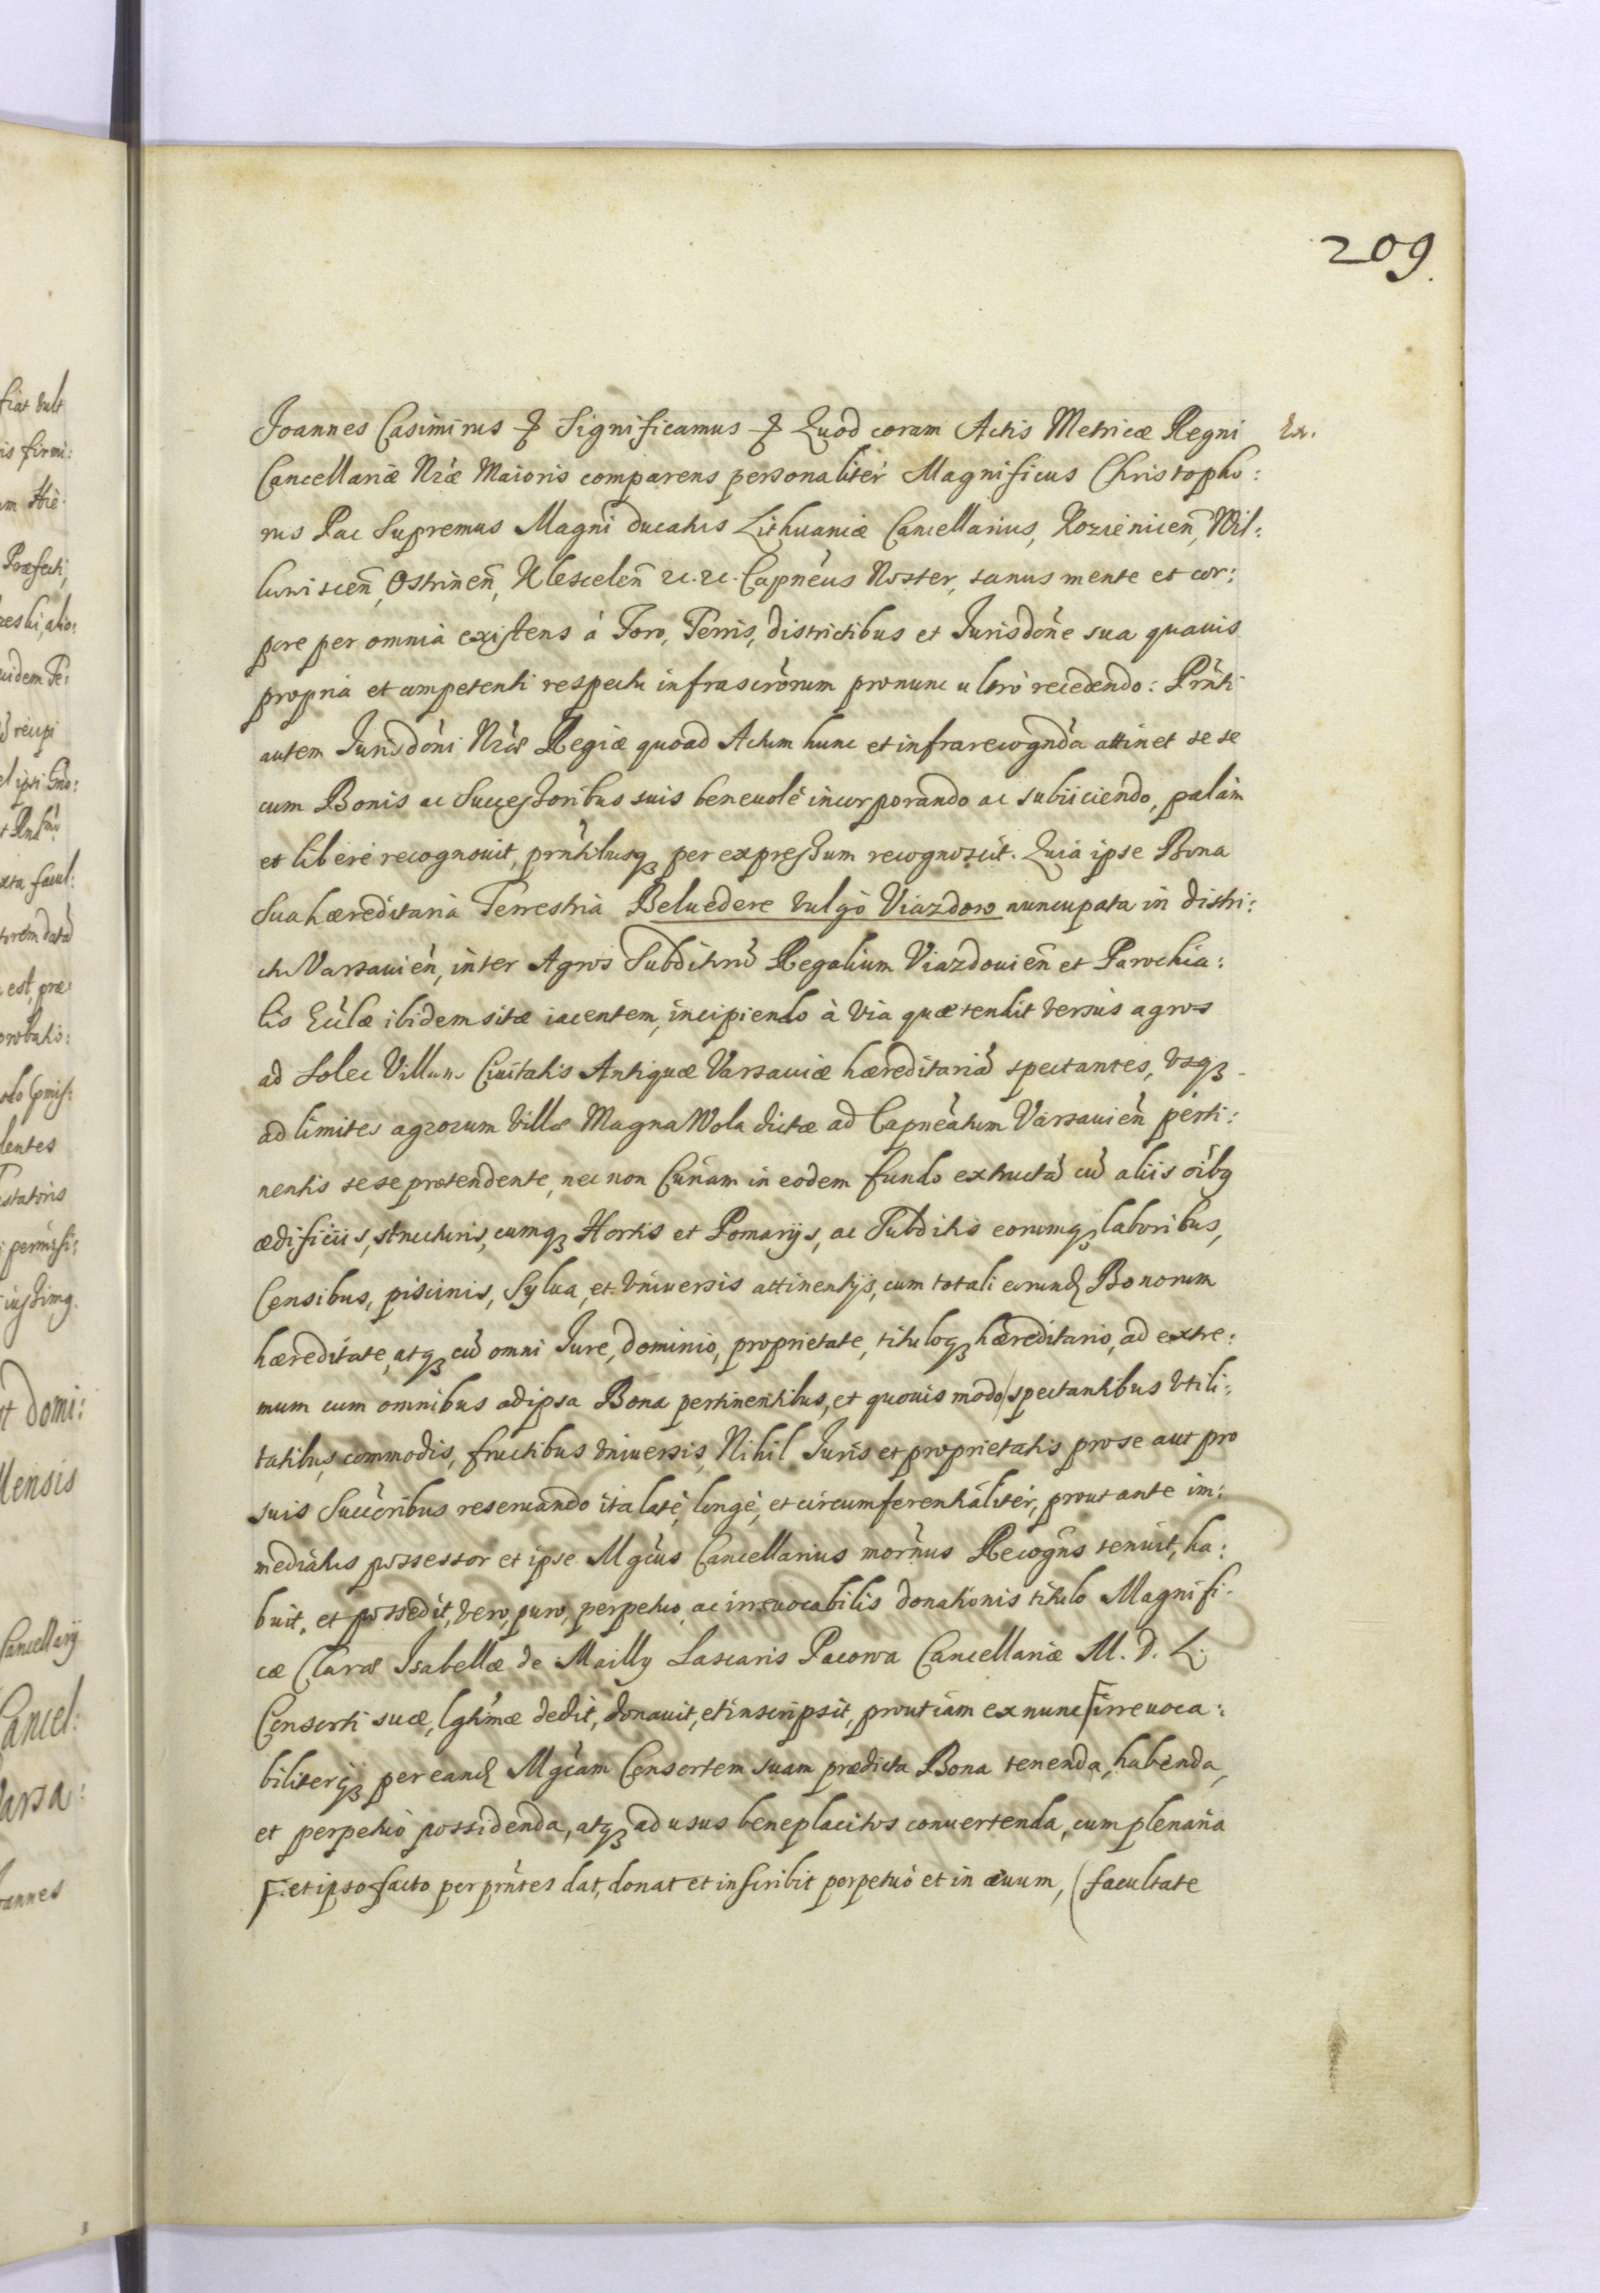 209.
Joannes Casimirus ꝛ Significamus ꝛ Quod coram Actis Metricæ Regni Ex.
Cancellariæ Nræ Maioris comparens personaliter Magnificus Christopho:
rus Pac Supremus Magni ducatus Lithuaniæ Cancellarius, Kozienicen̄, Wil:
Ostrinen̄, Klescelen̄ ꝛc. ꝛc. Capneus Noster, sanus mente et cor:
pore per omnia existens á Foro, Terris, districtibus et Jurisdōne sua quauis
propria et competenti respectu infrascrōrum pronunc ultró recedendo: Prn̄ti
autem Jurisdōni Nræ Regiæ quoad Actum hunc et infrarecogn̄da attinet se se
cum Bonis ac Successoribus suis beneuolé incorporando ac subiiciendo, palám
et liberé recognouit, prn̄tibusqꝫ per expressum recognoscit. Quia ipse Bona
Sua hæreditaria Terrestria Beluedere vulgò Viazdow nuncupata in distri:
ctu Varsauien̄, inter Agros Subditorū Regalium Viazdouien̄ et Parochia:
lis Ecclæ ibidem sitæ iacentem, incipiendo à via quæ tendit versùs agros
ad Solec Villam Ciuitatis Antiquæ Varsauiæ hæreditariā spectantes, vsqꝫ
ad limites agrorum villæ Magna Wola dictæ ad Capneatum Varsauien̄ perti:
nentis sese prætendente, nec non Curiam in eodem fundo extructā cū aliis oībꝰ
ædificiis, structuris, cumqꝫ Hortis et Pomarijs, ac Subditis eorumqꝫ laboribus,
Censibus, piscinis, Sylua, et vniuersis attinentijs, cum totali eorund̄ Bonorum
hæreditate, atqꝫ cū omni Jure, dominio, proprietate, tituloqꝫ hæreditario, ad extre:
mum cum omnibus ad ipsa Bona pertinentibus, et quouis modo spectantibus vtili:
tatibus, commodis, fructibus vniuersis, Nihil Juris et proprietatis pro se aut pro
suis Succōribus reseruando ita latè, longè, et circumferentialitér, prout ante im:
mediatus possessor et ipse Mgcus Cancellarius mōrnus Recogn̄s tenuit, ha:
buit, et possedit, vero, puro, perpetuo, ac irreuocabilis donationis titulo Magnifi:
cæ Claræ Isabellæ de Mailly Lascaris Pacowa Cancellariæ M. D. L.
Consorti suæ, lgtimæ dedit, donauit, et inscripsit, prout iam ex nunc F irreuoca:
biliterqꝫ per eand̄ Mgcam Consortem suam prædicta Bona tenenda, habenda,
et perpetuò possidenda, atqꝫ ad usus beneplacitos conuertenda, cum plenaria
F. et ipso facto per prn̄tes dat, donat et inscribit perpetuó et in æuum, (facultate